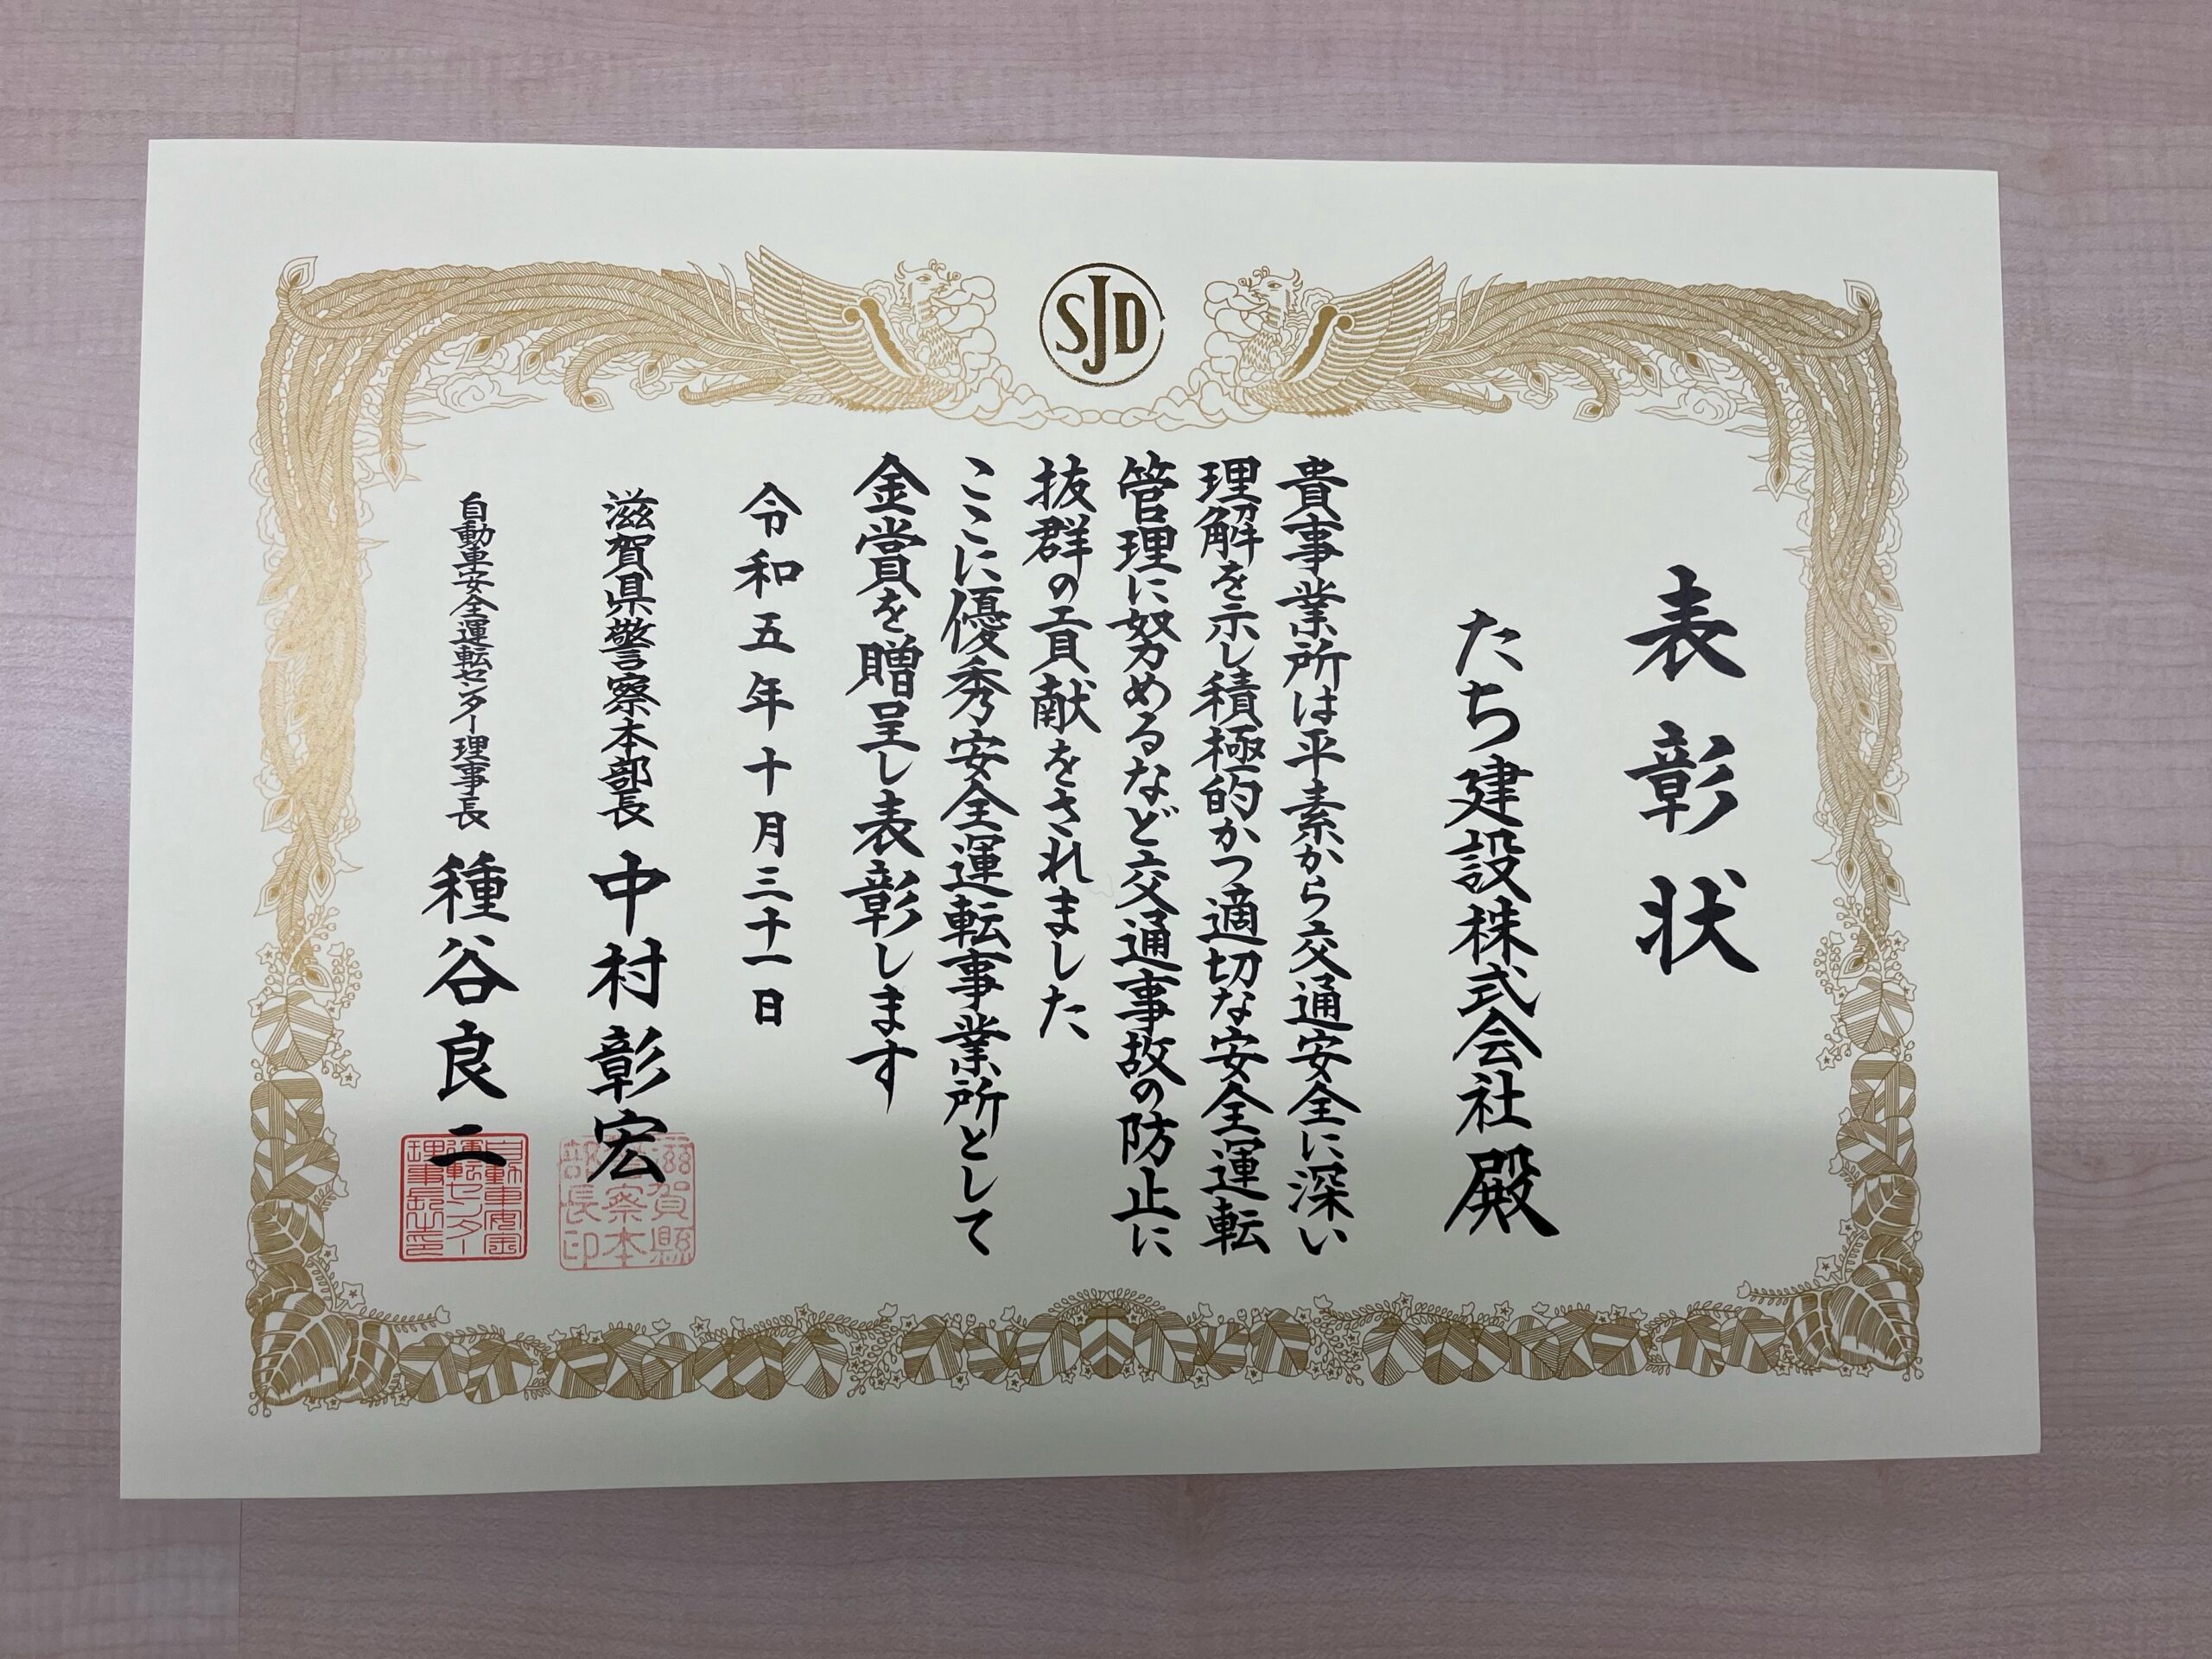 SJD
表彰状
たち建設株式会社殿
貴事業所は平素から交通安全に深い
理解を示し積極的かつ適切な安全運転
管理に努めるなど交通事故の防止に
抜群の貢献をされました
ここに優秀安全運転事業所として
金賞を贈呈し表彰します
令和五年十月三十一日
滋賀県警察本部長 中村彰宏
滋賀縣警察本部長印
自動車安全運転センター理事長 種谷良二
自動車安全運転センター理事長之印